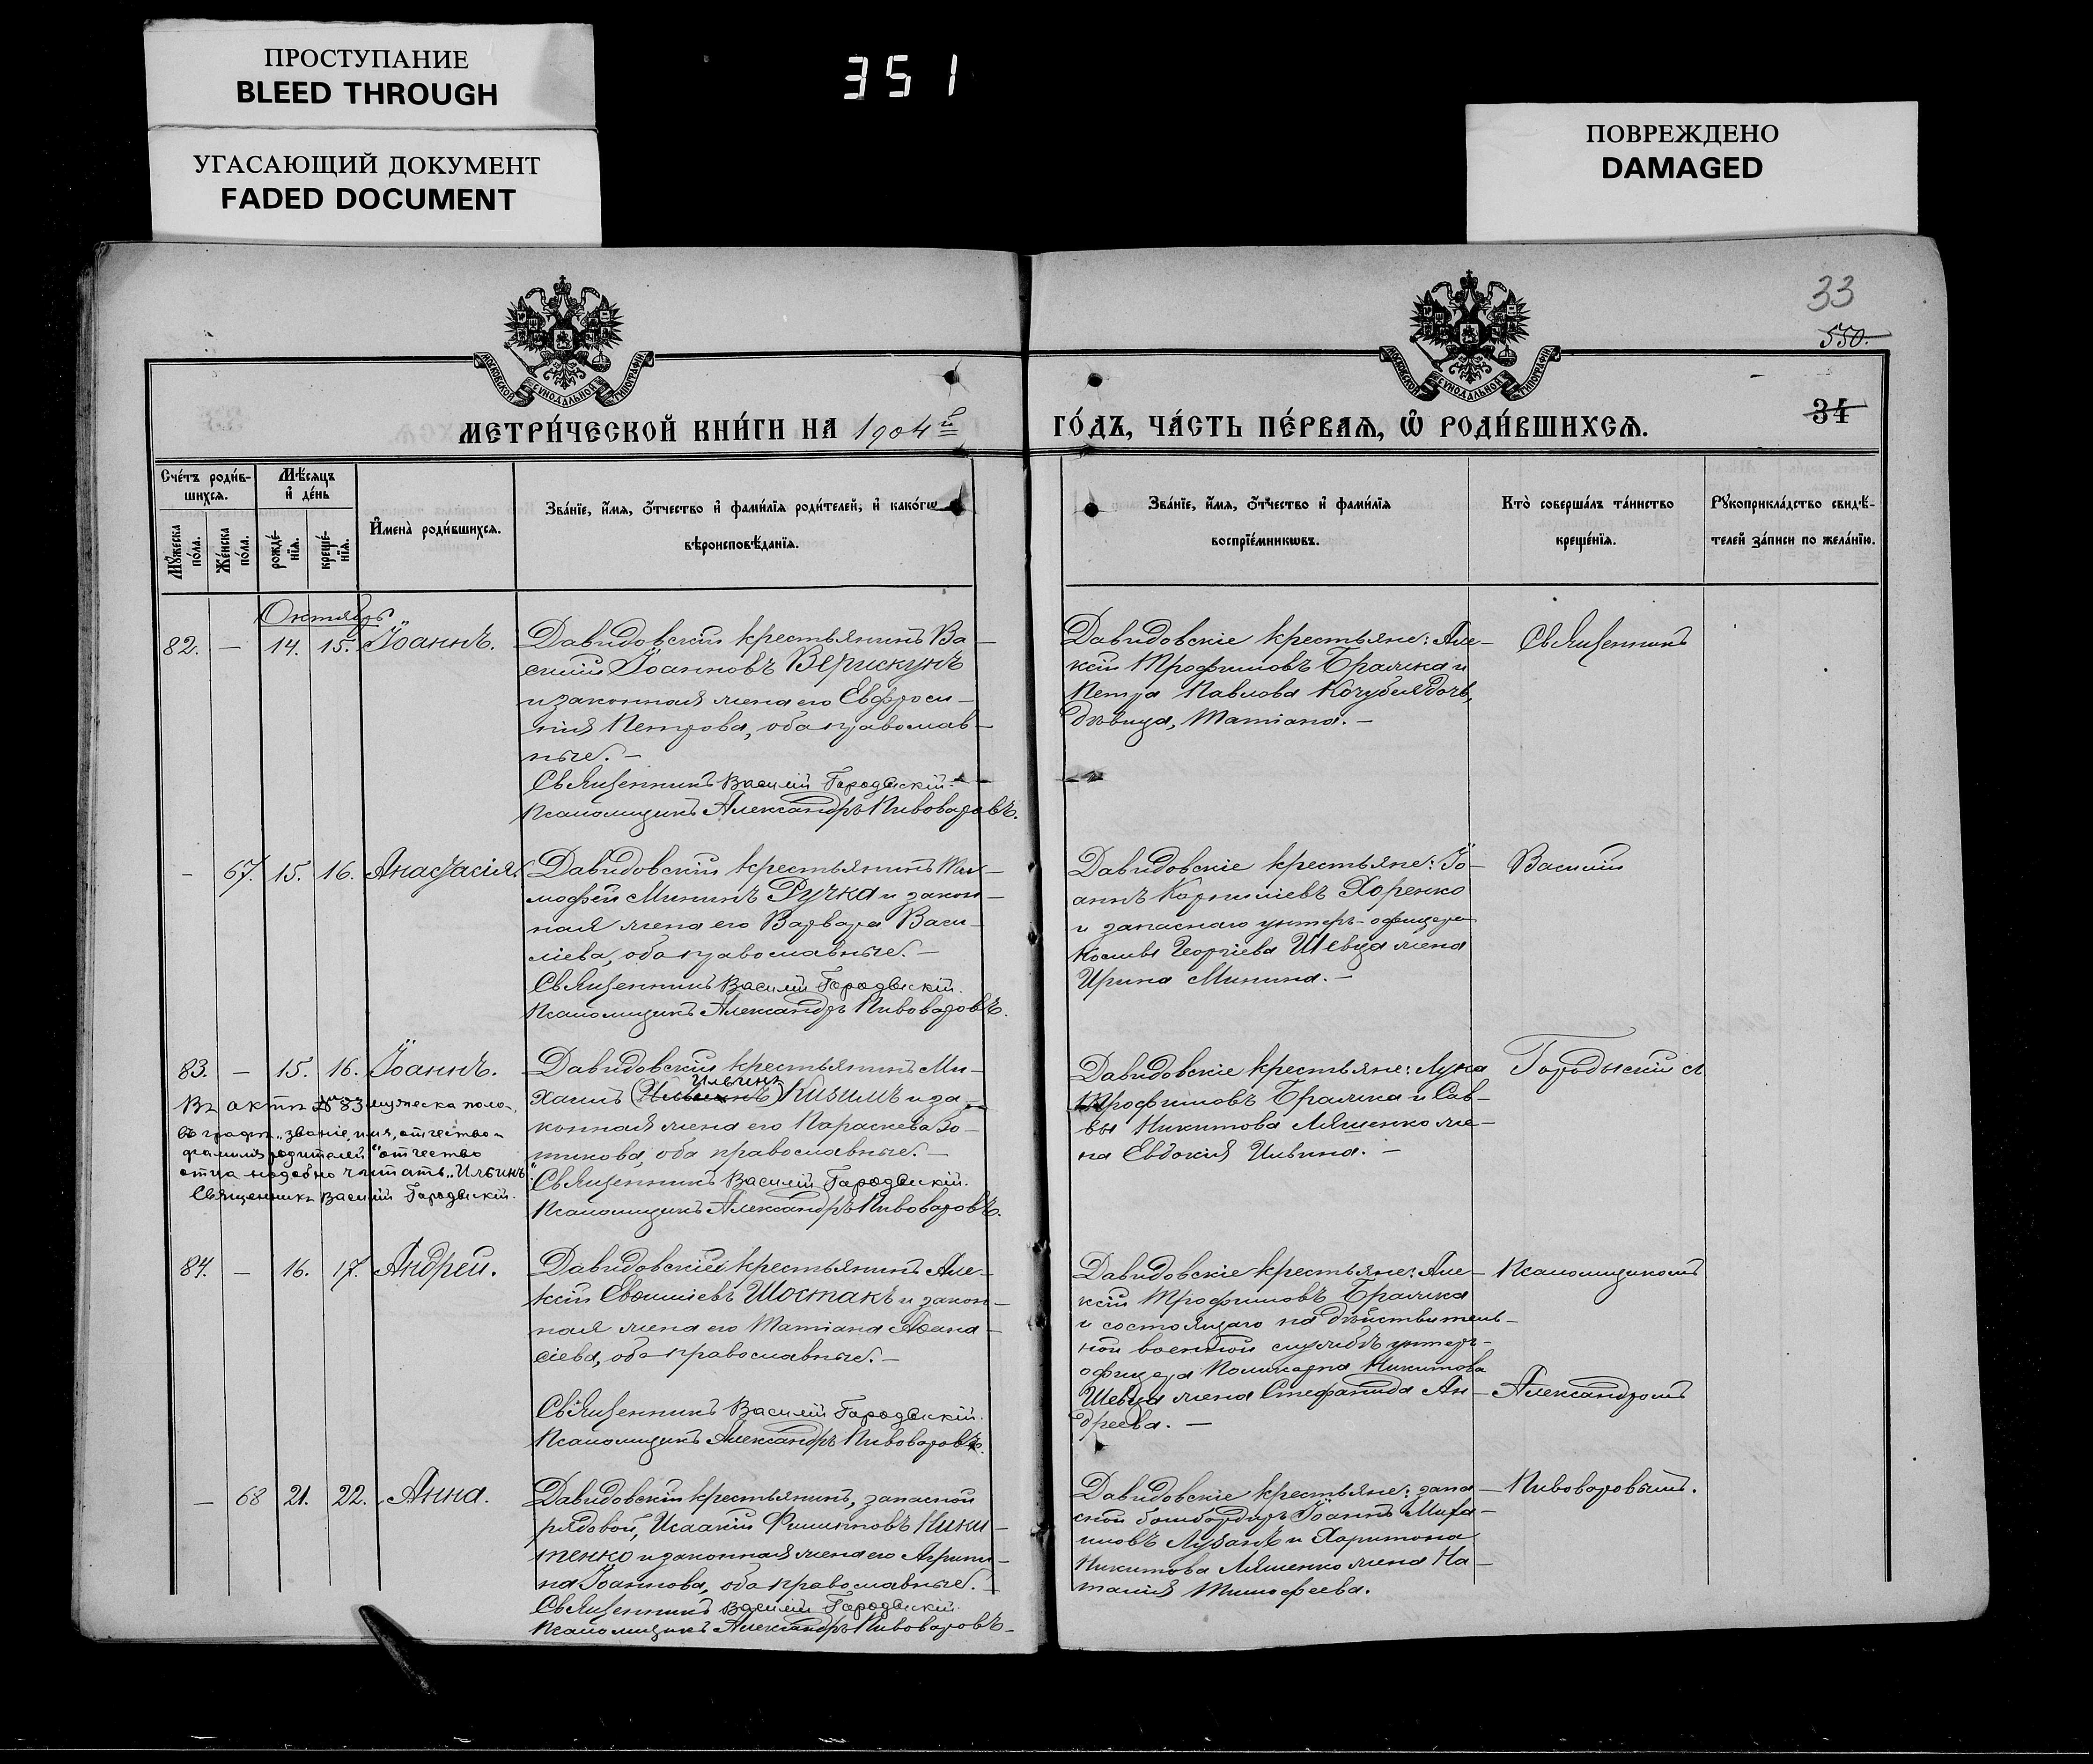 ПРОСТУПАНИЕ
BLEED THROUGH
УГАСАЮЩИЙ ДОКУМЕНТ
FADED DOCUMENT
351
ПОВРЕЖДЕНО
DAMAGED
33
550.
34
МОСКОВСКОЙ СѴНОДАЛЬНОЙ ТИПОГРАФІИ
МОСКОВСКОЙ СѴНОДАЛЬНОЙ ТИПОГРАФІИ
МЕТРИ́ЧЕСКОЙ КНИ́ГИ НА 1904й
ГО́ДЪ, ЧА́СТЬ ПЕ́РВАЯ, Ѡ҆ РОДИ́ВШИХСЯ.
Сче́тъ роди́в-
шихся.
Мѣ́сяцъ
и҆ де́нь
Мꙋ́жеска
по́ла.
Же́нска
по́ла.
рожде́-
нїя.
креще́-
нїя.
И҆мена̀ роди́вшихся.
Зва́нїе, и҆́мя, ѻ҆́тчество и҆ фами́лїя роди́телей, и҆ како́гѡ
вѣроисповѣ́данїя.
Зва́нїе, и҆́мя, ѻ҆́тчество и҆ фами́лїя
воспрїе́мникѡвъ.
Кто̀ соверша́лъ та́инство
креще́нїя.
Рꙋкоприкла́дство свидѣ́-
телей за́писи по жела́нїю.
Октябрь
82. — 14. 15. Іоаннъ.
Давидовскій крестьянинъ Ва-
силій Іоанновъ Верискунъ
и законная жена его Евфроси-
нія Петрова, оба православ-
ные. —
Священникъ Василій Городыскій.
Псаломщикъ Александръ Пивоваровъ.
Давидовскіе крестьяне: Але-
ксій Трофимовъ Бражка и
Петра Павлова Кочубея дочь,
дѣвица, Татіана. —
Священникъ
— 67. 15. 16. Анастасія.
Давидовскій крестьянинъ Ти-
мофей Мининъ Ручка и закон-
ная жена его Варвара Васи-
ліева, оба православные. —
Священникъ Василій Городыскій.
Псаломщикъ Александръ Пивоваровъ.
Давидовскіе крестьяне: Іо-
аннъ Корниліевъ Хоренко
и запаснаго унтеръ-офицера
Космы Георгіева Шевца жена
Ирина Минина. —
Василій
83. — 15. 16. Іоаннъ.
Въ актѣ № 83 мужеска пола,
въ графѣ „званіе, имя, отчество и
фамилія родителей" отчество
отца надобно читать „Ильинъ".
Священникъ Василій Городыскій.
Давидовскій крестьянинъ Ми-
Ильинъ
хаилъ Кизимъ и за-
конная жена его Параскева Зо-
тикова, оба православные. —
Священникъ Василій Городыскій.
Псаломщикъ Александръ Пивоваровъ.
Давидовскіе крестьяне: Лука
Трофимовъ Бражка и Сав-
вы Никитова Ляшенко же-
на Евдокія Ильина. —
Городыскій съ
84. — 16. 17. Андрей.
Давидовскій крестьянинъ Але-
ксій Шостакъ и закон-
ная жена его Татіана Аѳана-
сіева, оба православные. —
Священникъ Василій Городыскій.
Псаломщикъ Александръ Пивоваровъ.
Давидовскіе крестьяне: Але-
ксій Трофимовъ Бражка
и состоящаго на дѣйствитель-
ной военной службѣ унтеръ-
офицера Поликарпа Никитова
Шевца жена Стефанида Ан-
дреева. —
Псаломщикомъ
Александромъ
— 68 21. 22. Анна.
Давидовскій крестьянинъ, запасной
рядовой, Исаакій Филипповъ Ники-
тенко и законная жена его Агрипи-
на Іоаннова, оба православные. —
Священникъ Василій Городыскій.
Псаломщикъ Александръ Пивоваровъ.
Давидовскіе крестьяне: запа-
сной бомбардиръ Іоаннъ Миха-
иловъ Лузанъ и Харитона
Никитова Ляшенко жена На-
талія Тимофеева.
Пивоваровымъ.